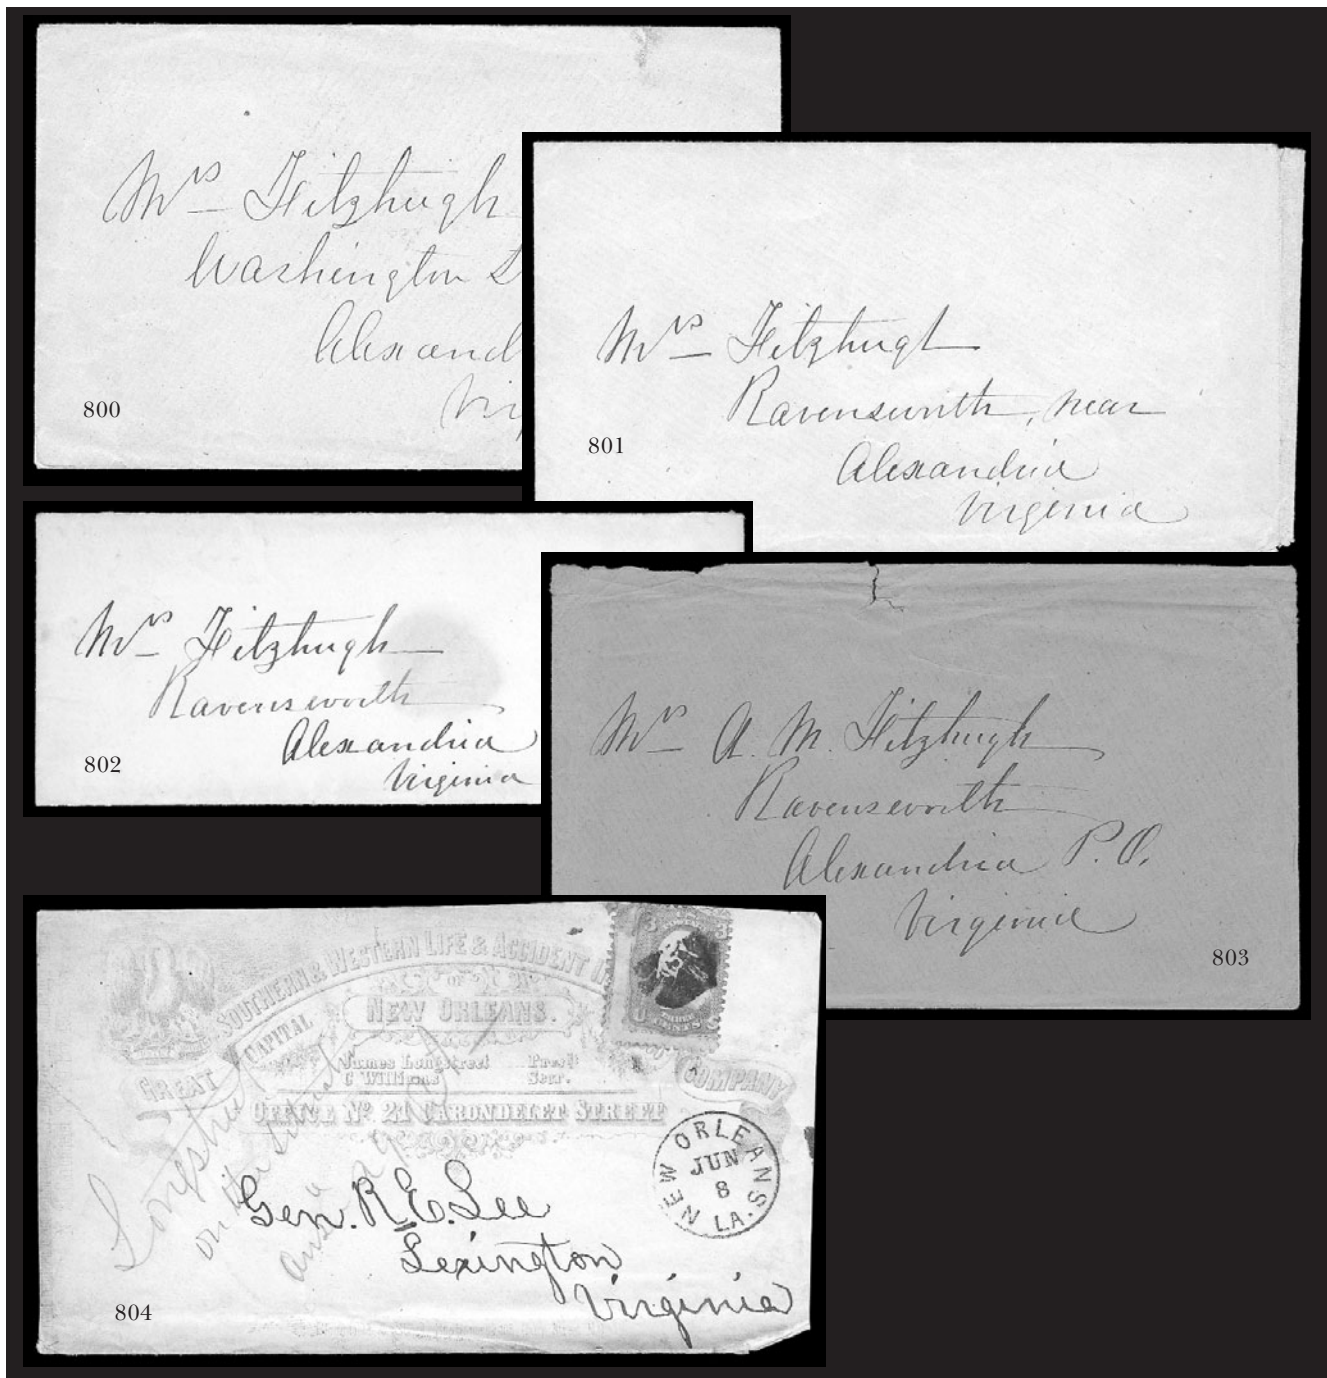 Mrs Fitzhugh
Washington
800
Mrs Fitzhugh
Ravensworth, near
Alexandria
Virginia
801
Mrs Fitzhugh
Ravensworth
Alexandria
Virginia
802
Mrs A. M. Fitzhugh
Ravensworth
Alexandria P.O.
Virginia
803
SOUTHERN & WESTERN LIFE & ACCIDENT
OF
NEW ORLEANS.
CAPITAL
James Longstreet Prest
C Williams Secr.
GREAT
COMPANY
OFFICE No. 21 CARONDELET STREET
NEW ORLEANS LA.
JUN
8
Longstreet
on the
ansd
Gen. R. E. Lee
Lexington
Virginia
804